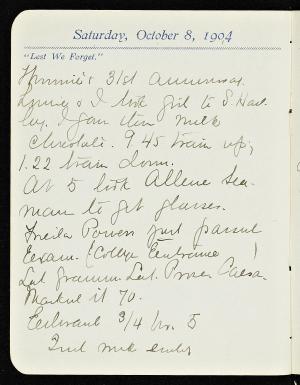 Saturday, October 8, 1904
"Lest We Forget."
31st
& I took girl to S. Had.
ley. I gave them milk
chocolate. 9.45 train up;
1.22 train down.
At 5 took Allene Sea-
man to get glasses.
Powers just passed
Exam. (College Entrance)!
Lat. Gramm. Lat. Prose. Caesar
Marked it 70.
3/4 hr. 5
2nd